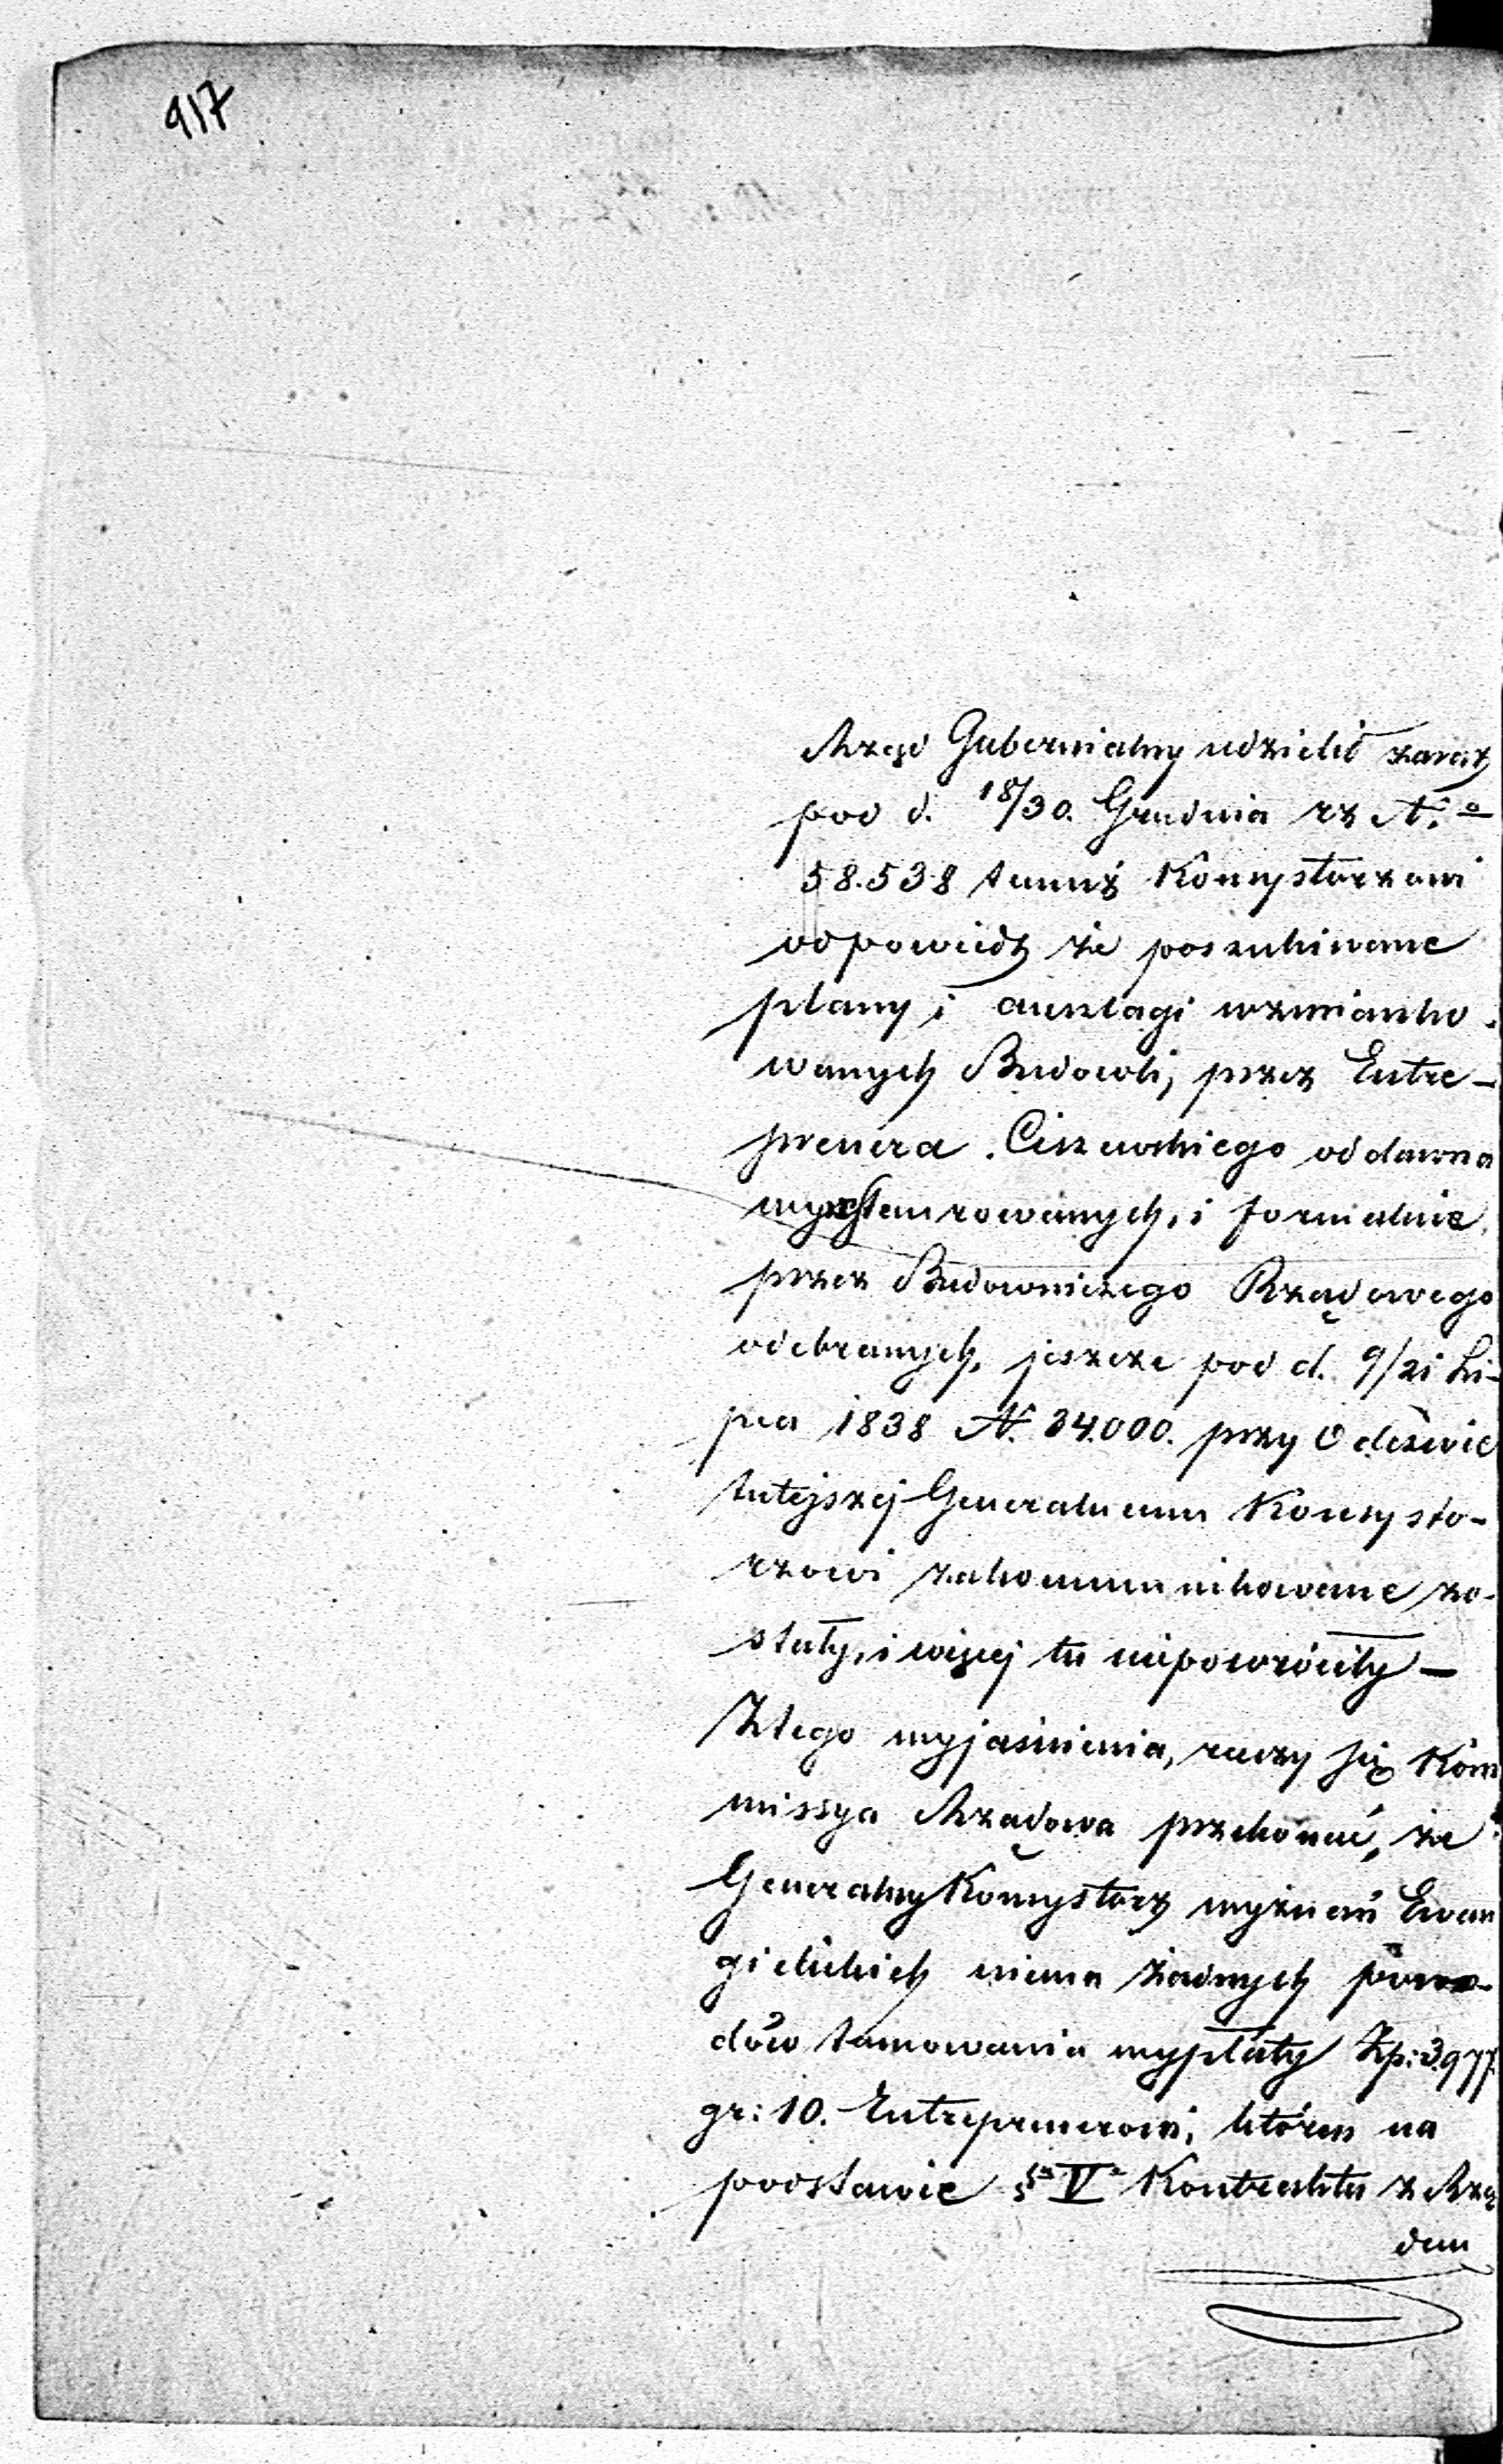 917
Rząd Gubernialny udzielił zaraz
pod d. 18/30. Grudnia rz N.o
58.538 temuż Konsystorzowi
odpowiedz że poszukiwane
plany i anszlagi wzmianko-
wanych Budowli, przez Entre-
prenera Ciszewskiego oddawna
wyrestaurowanych, i formalnie
przez Budowniczego Rządowego
odebranych, jeszcze pod d. 9/21 Li-
pca 1838 N. 34.000. przy Odezwie
tutejszej Generalnemu Konsysto-
rzowi zakommunikowane zo-
stały, i więcej tu niepowróciły —
Ztego wyjaśnienia, raczy się Kom
missya Rządowa przekonać, że
Generalny Konsystorz wyznań Ewan
gielickich niema żadnych powo-
dów tamowania wypłaty Zp: 3.977.
gr: 10. Entreprenerowi, któren na
podstawie § V Kontraktu z Rzą
dem